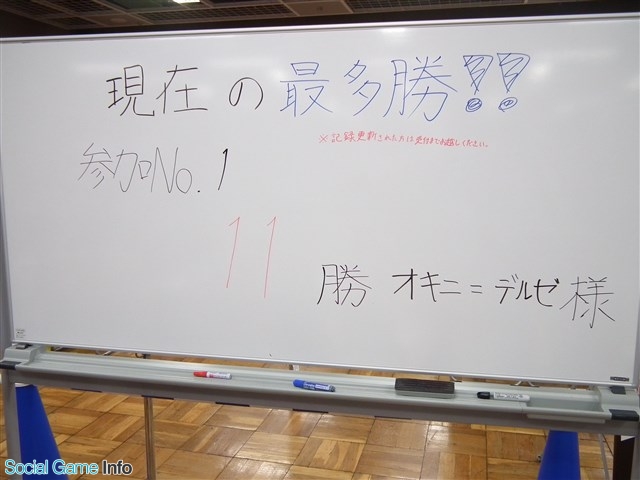 現在の最多勝!!
※記録更新された方は受付までお越しください。
参加No.1
11
勝 オキニ=デルゼ様
Social Game Info